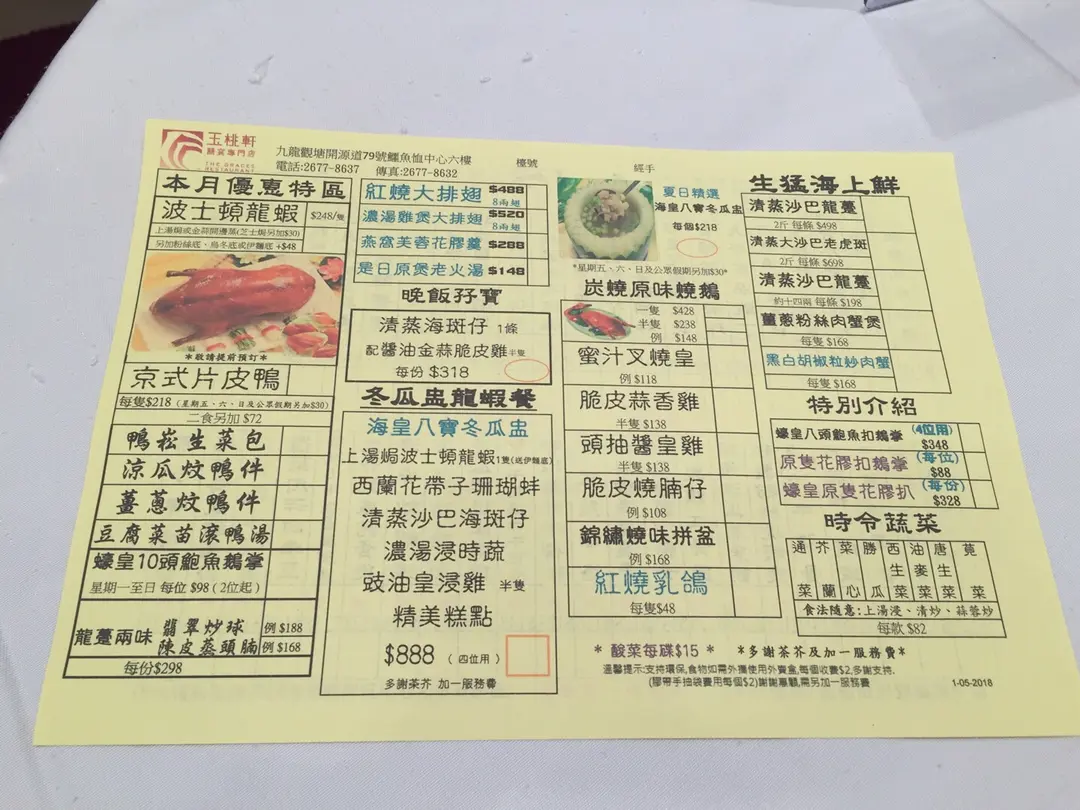 玉桃軒
THE GRACES
RESTAURANT
九龍觀塘開源道79號鱷魚恤中心六樓
電話:2677-8637 傳真:2677-8632
檯號
經手
本月優惠特區
波士頓龍蝦 $248/隻
上湯焗或金蒜開邊蒸(芝士焗另加$30)
另加粉絲底、烏冬底或伊麵底 +$48
*敬請提前預訂*
京式片皮鴨
每隻$218 (星期五、六、日及公眾假期另加$30)
二食另加 $72
鴨崧生菜包
涼瓜炆鴨件
薑蔥炆鴨件
豆腐菜苗滾鴨湯
蠔皇10頭鮑魚鵝掌
星期一至日 每位 $98 (2位起)
龍躉兩味
翡翠炒球 例 $188
陳皮蒸頭腩 例 $168
每份$298
紅燒大排翅 $488
8兩翅
濃湯雞煲大排翅 $520
8兩翅
燕窩芙蓉花膠羹 $288
是日原煲老火湯 $148
晚飯孖寶
清蒸海斑仔 1條
配醬油金蒜脆皮雞 半隻
每份 $318
冬瓜盅龍蝦餐
海皇八寶冬瓜盅
上湯焗波士頓龍蝦 1隻(送伊麵底)
西蘭花帶子珊瑚蚌
清蒸沙巴海斑仔
濃湯浸時蔬
豉油皇浸雞 半隻
精美糕點
$888 (四位用)
多謝茶芥 加一服務費
夏日精選
海皇八寶冬瓜盅
每個$218
*星期五、六、日及公眾假期另加$30*
炭燒原味燒鵝
一隻 $428
半隻 $238
例 $148
蜜汁叉燒皇
例 $118
脆皮蒜香雞
半隻 $138
頭抽醬皇雞
半隻 $138
脆皮燒腩仔
例 $108
錦繡燒味拼盆
例 $168
紅燒乳鴿
每隻$48
生猛海上鮮
清蒸沙巴龍躉
2斤 每條 $498
清蒸大沙巴老虎斑
2斤 每條 $698
清蒸沙巴龍躉
約十四兩 每條 $198
薑蔥粉絲肉蟹煲
每隻 $168
黑白胡椒粒炒肉蟹
每隻 $168
特別介紹
蠔皇八頭鮑魚扣鵝掌 (4位用)
$348
原隻花膠扣鵝掌 (每位)
$88
蠔皇原隻花膠扒 (每份)
$328
時令蔬菜
通菜 芥蘭 菜心 勝瓜 西生菜 油麥菜 唐生菜 莧菜
食法隨意:上湯浸、清炒、蒜蓉炒
每款 $82
* 酸菜每碟$15 * *多謝茶芥及加一服務費*
溫馨提示:支持環保,食物如需外攜使用外賣盒,每個收費$2,多謝支持.
(膠帶手抽袋費用每個$2)謝謝惠顧,需另加一服務費
1-05-2018